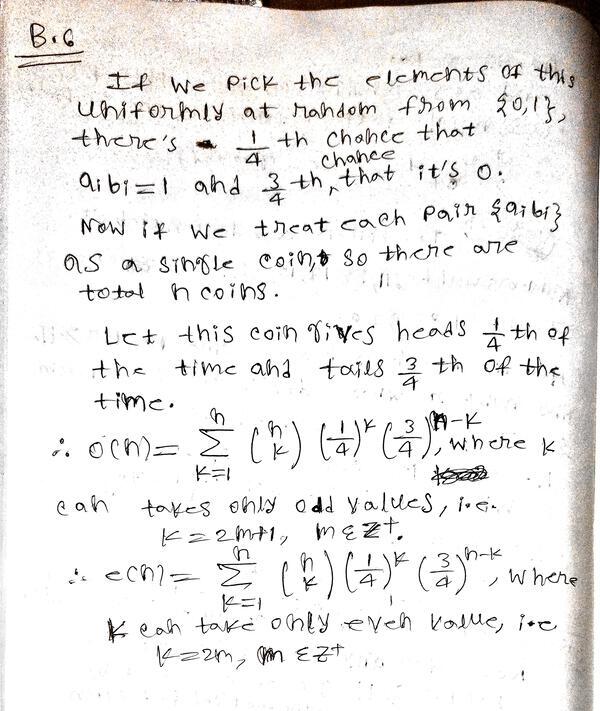 B.6
If we pick the elements of this
uniformly at random from {0,1},
there's 1/4 th chance that
aibi=1 and 3/4 th, chance that it's 0.
Now if we treat each pair {aibi}
as a single coin, so there are
total n coins.
Let, this coin gives heads 1/4 th of
the time and tails 3/4 th of the
time.
∴ o(n)= Σ_{k=1}^{n} (n k) (1/4)^k (3/4)^{n-k}, where k
can takes only odd values, i.e.
k=2m+1, m ε z+.
∴ e(n)= Σ_{k=1}^{n} (n k) (1/4)^k (3/4)^{n-k}, where
k can take only even value, i.e
k=2m, m ε z+.